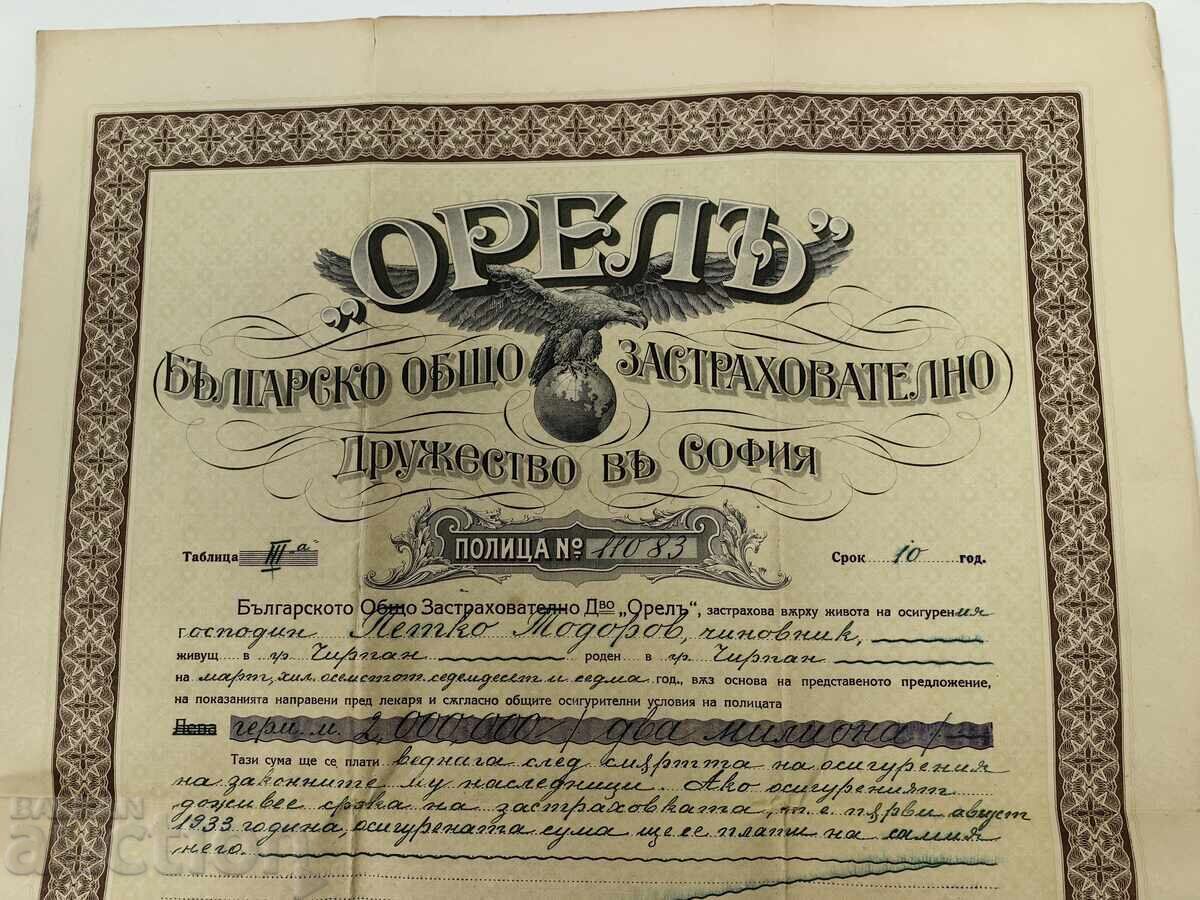 „ОРЕЛЪ”
БЪЛГАРСКО ОБЩО ЗАСТРАХОВАТЕЛНО
ДРУЖЕСТВО ВЪ СОФИЯ
Таблица III-а ПОЛИЦА № 11083 Срок 10 год.
Българското Общо Застрахователно Дво „Орелъ“, застрахова вѫрху живота на осигурения
господин Петко Тодоров, чиновник,
живущ в гр. Чирпан роден в гр. Чирпан
на март, хил. осемстот. седемдесет и седма год., вѫз основа на представеното предложение,
на показанията направени пред лекаря и сѫгласно общите осигурителни условия на полицата
Лева герм. м. 2,000,000 / два милиона /
Тази сума ще се плати веднага след смъртта на осигурения
на законните му наследници. Ако осигуреният
доживее срока на застраховката, т. е. първи август
1933 година, осигурената сума ще се плати на самия
него.
BALKAN
auction